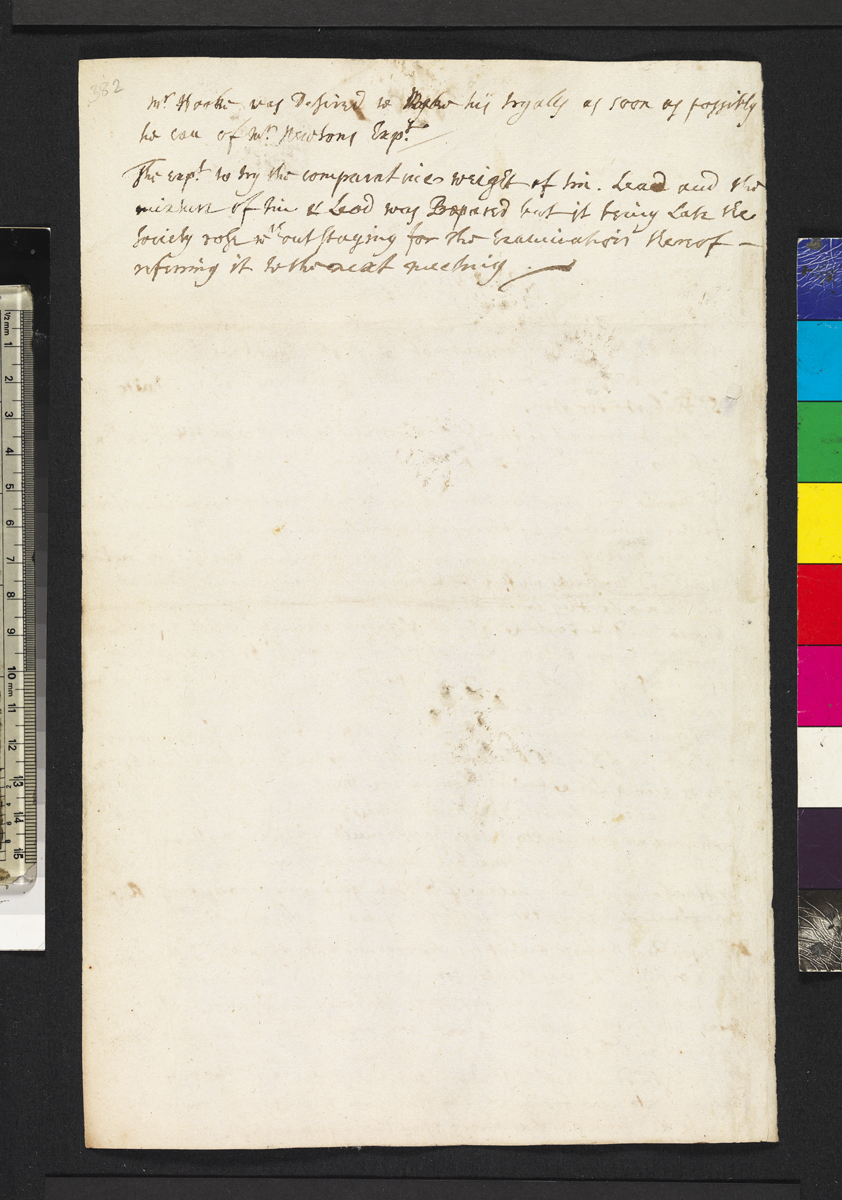 382
Mr Hooke was Desired to Make his tryalls as soon as possibly
he can of Mr Newtons Expt.
The expt. to try the comparative weight of tin. Lead and the
mixture of tin & Lead was Prepared but it being Late the
Society rose wthout staying for the examination thereof –
referring it to the next meeting .
1/2 mm 1 2 3 4 5 6 7 8 9 10 mm 11 12 13 14 15